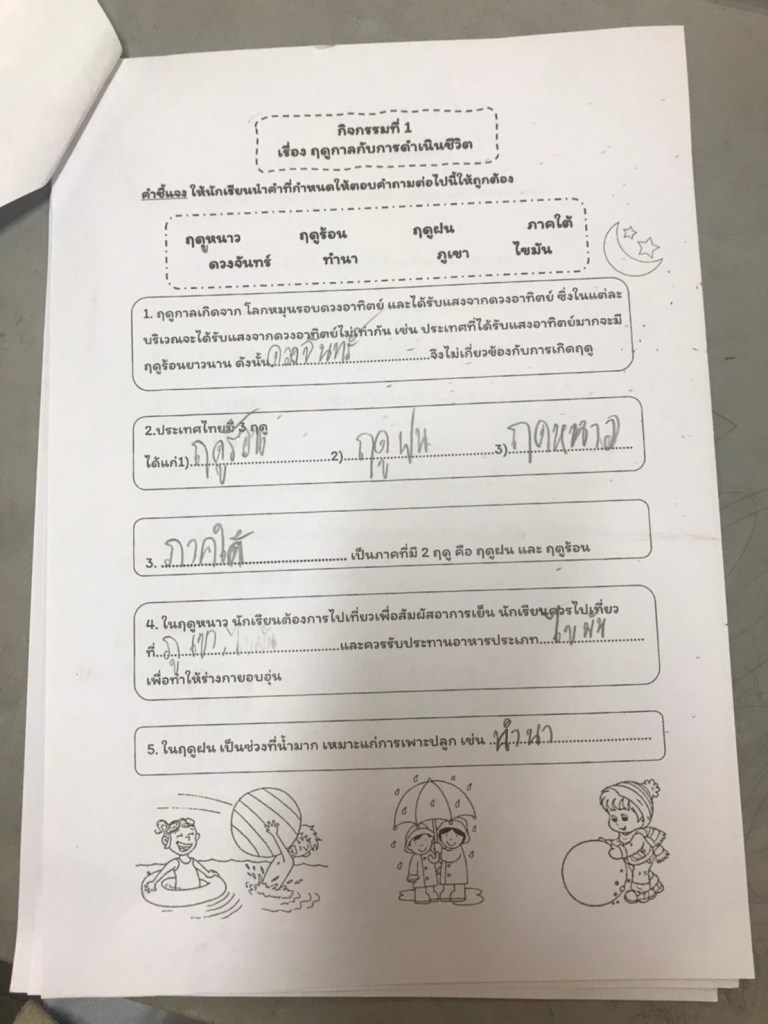 กิจกรรมที่ 1
เรื่อง ฤดูกาลกับการดำเนินชีวิต
คำชี้แจง ให้นักเรียนนำคำที่กำหนดให้ตอบคำถามต่อไปนี้ให้ถูกต้อง
ฤดูหนาว ฤดูร้อน ฤดูฝน ภาคใต้
ดวงจันทร์ ทำนา ภูเขา ไขมัน
1. ฤดูกาลเกิดจาก โลกหมุนรอบดวงอาทิตย์ และได้รับแสงจากดวงอาทิตย์ ซึ่งในแต่ละ
บริเวณจะได้รับแสงจากดวงอาทิตย์ไม่เท่ากัน เช่น ประเทศที่ได้รับแสงอาทิตย์มากจะมี
ฤดูร้อนยาวนาน ดังนั้น ดวงจันทร์ จึงไม่เกี่ยวข้องกับการเกิดฤดู
2.ประเทศไทยมี 3 ฤดู
ได้แก่1) ฤดูร้อน 2) ฤดูฝน 3) ฤดหนาว
3. ภาคใต้ เป็นภาคที่มี 2 ฤดู คือ ฤดูฝน และ ฤดูร้อน
4. ในฤดูหนาว นักเรียนต้องการไปเที่ยวเพื่อสัมผัสอาการเย็น นักเรียนควรไปเที่ยว
ที่ ภูเขา และควรรับประทานอาหารประเภท ไขมัน
เพื่อทำให้ร่างกายอบอุ่น
5. ในฤดูฝน เป็นช่วงที่น้ำมาก เหมาะแก่การเพาะปลูก เช่น ทำนา